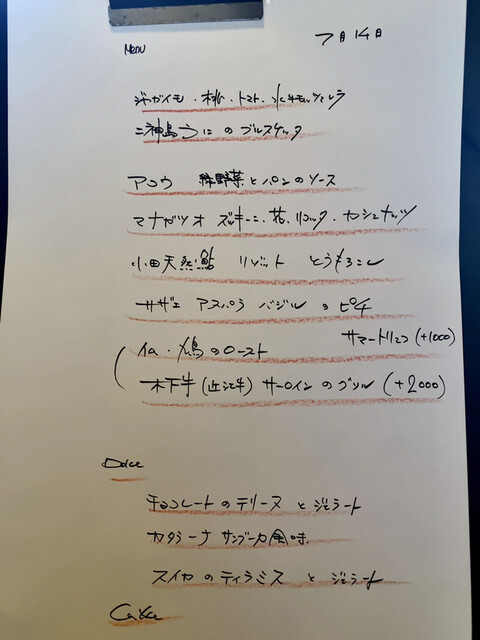 Menu 7月14日
ジャガイモ・桃・トマト・水牛モッツァレラ
二神島うにのブルスケッタ
アコウ 野菜とパンのソース
マナガツオ ズッキーニ・花・リコッタ・カシューナッツ
小田天然鮎 リゾット とうもろこし
サザエ アスパラ バジルのピチ
サマートリュフ(+1000)
仏・鳩のロースト
木下牛(近江牛)サーロインのグリル(+2000)
Dolce
チョコレートのテリーヌとジェラート
カタラーナ サンブーカ風味
スイカのティラミスとジェラート